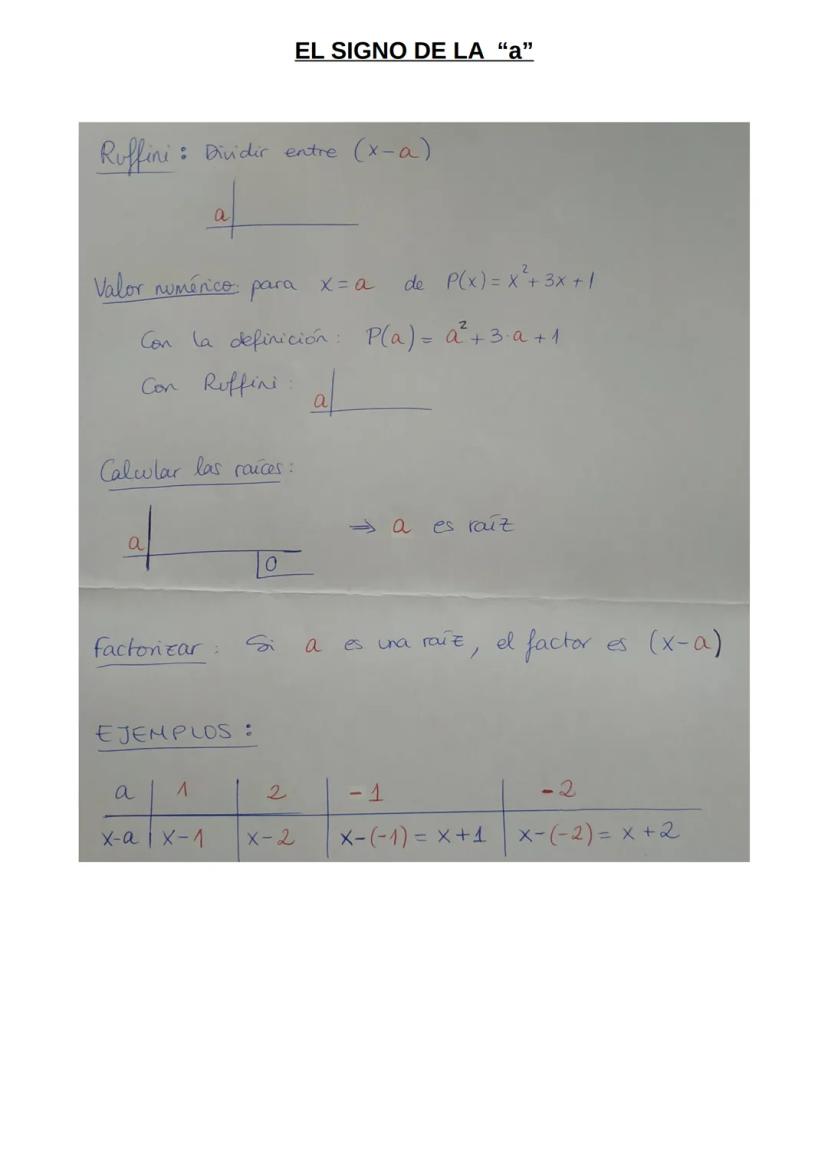 EL SIGNO DE LA “a”
Ruffini: Dividir entre (x-a)
a
Valor numérico: para x=a de P(x)=x²+3x+1
Con la definición: P(a)=a²+3·a+1
Con Ruffini:
a
Calcular las raíces:
a ⇒ a es raíz
0
Factorizar: Si a es una raíz, el factor es (x-a)
EJEMPLOS:
a 1 2 -1 -2
x-a x-1 x-2 x-(-1)=x+1 x-(-2)=x+2